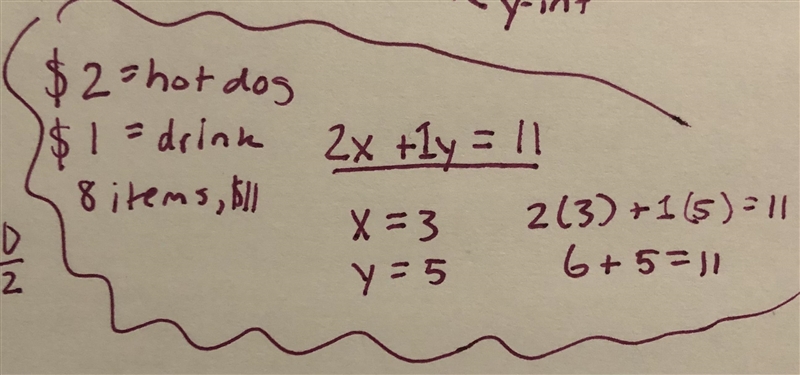 y-int
$2 = hot dog
$1 = drink
8 items, $11
2x + 1y = 11
x = 3
y = 5
2(3) + 1(5) = 11
6 + 5 = 11
2